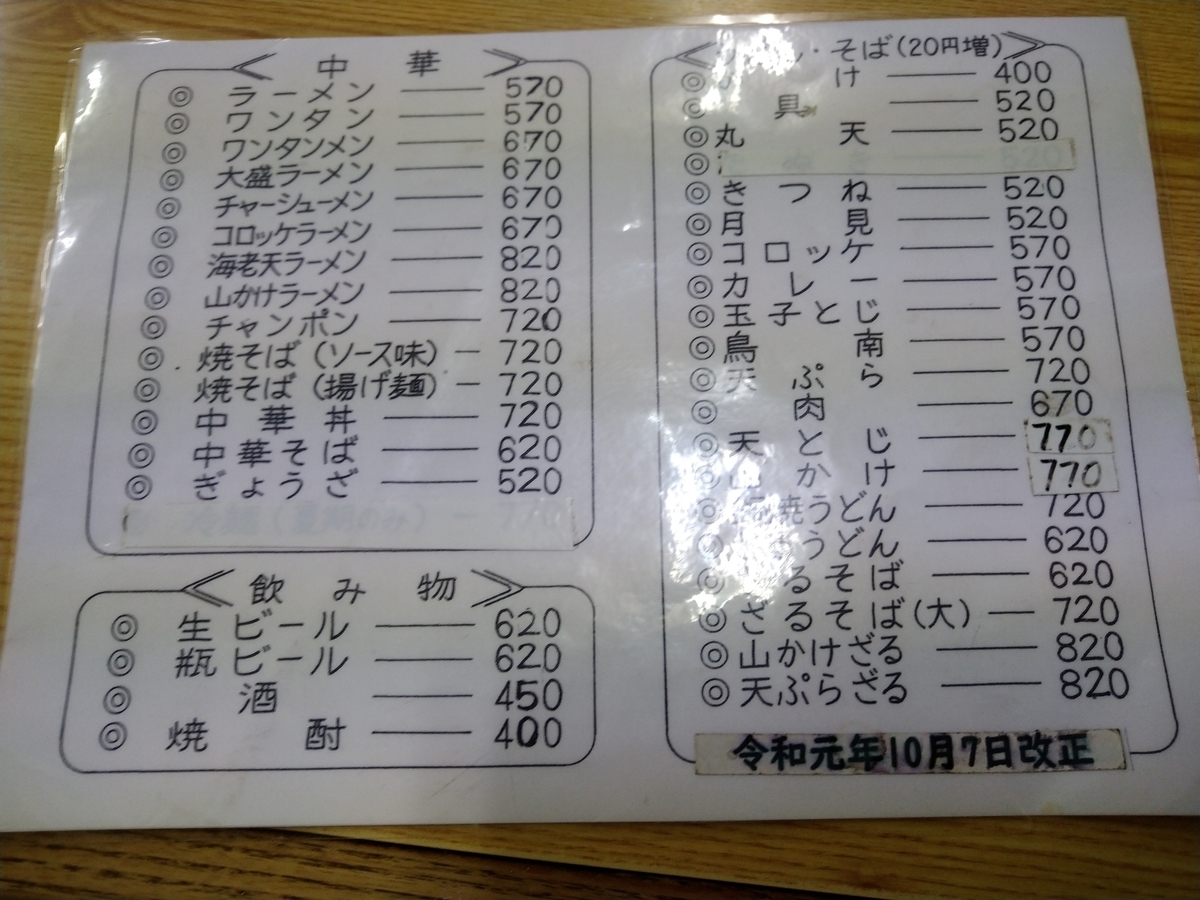 中 華
◎ ラーメン 570
◎ ワンタン 570
◎ ワンタンメン 670
◎ 大盛ラーメン 670
◎ チャーシューメン 670
◎ コロッケラーメン 670
◎ 海老天ラーメン 820
◎ 山かけラーメン 820
◎ チャンポン 720
◎ 焼そば（ソース味） 720
◎ 焼そば（揚げ麺） 720
◎ 中華丼 720
◎ 中華そば 620
◎ ぎょうざ 520
冷麺（夏期のみ） 770
飲 み 物
◎ 生ビール 620
◎ 瓶ビール 620
◎ 酒 450
◎ 焼酎 400
・そば（20円増）
◎ け 400
◎ 具 520
◎ 丸天 520
◎ 520
◎ きつね 520
◎ 月見 520
◎ コロッケ 570
◎ カレー 570
◎ 玉子とじ 570
◎ 鳥南 570
◎ 天ぷら 720
◎ 肉 670
◎ 天とじ 770
◎ 山かけ 770
◎ 焼うどん 720
◎ うどん 620
◎ るそば 620
◎ ざるそば（大） 720
◎ 山かけざる 820
◎ 天ぷらざる 820
令和元年10月7日改正